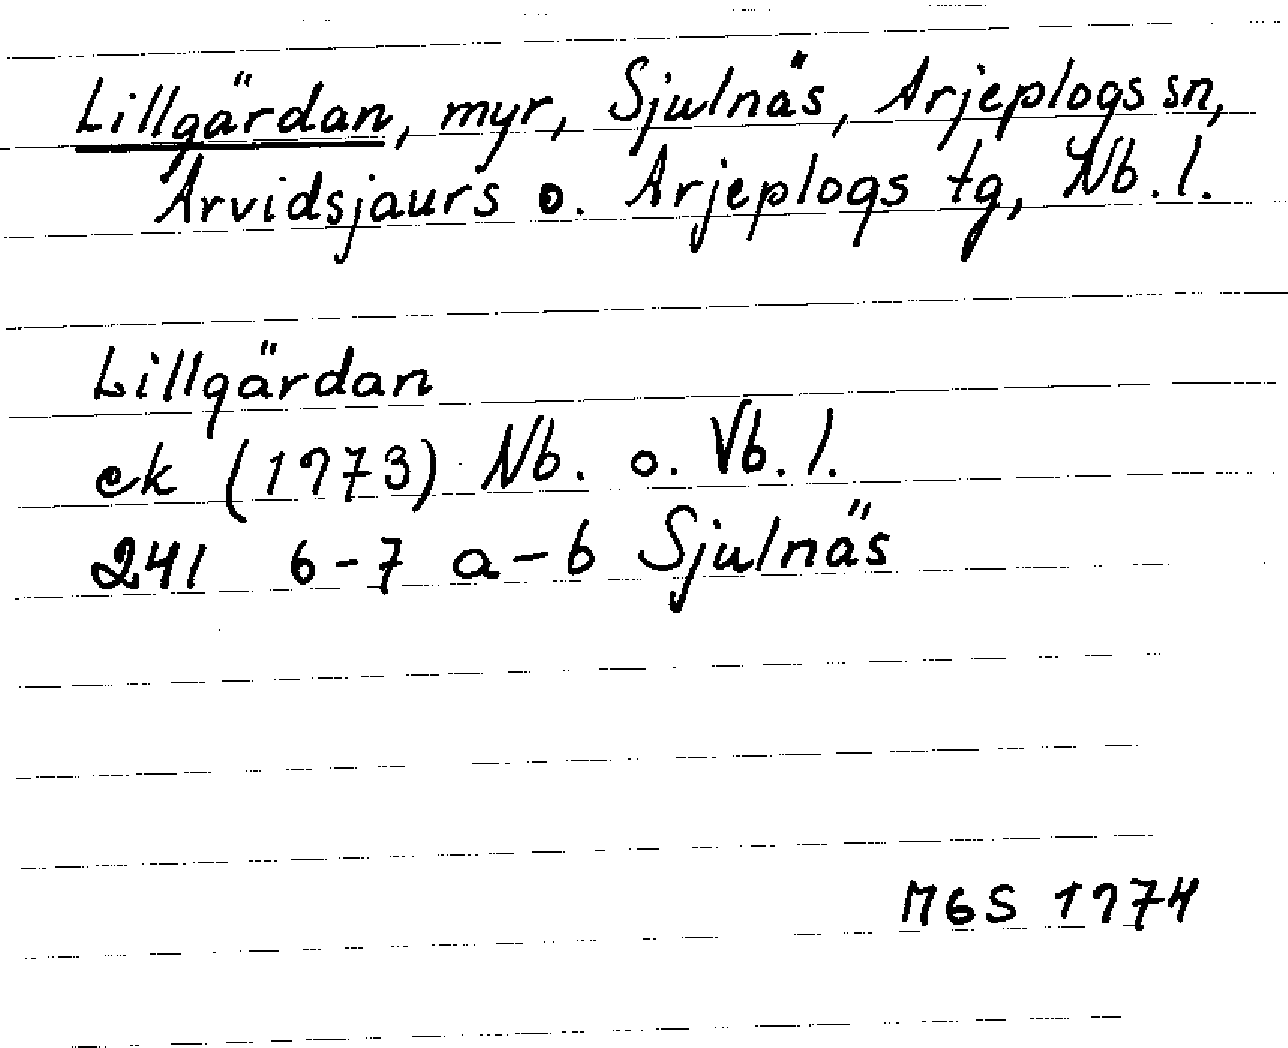 Lillgärdan, myr, Sjulnäs, Arjeplogs sn,
Arvidsjaurs o. Arjeplogs tg, Nb. l.
Lillgärdan
ek (1973) Nb. o. Vb. l.
241 6-7 a-b Sjulnäs
MGS 1974